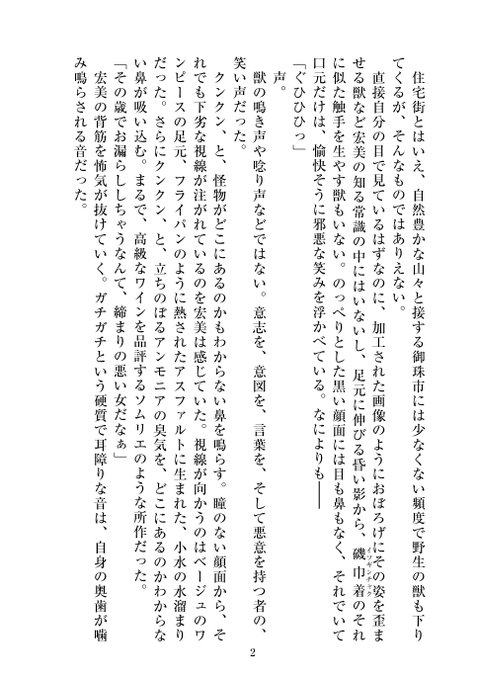 住宅街とはいえ、自然豊かな山々と接する御珠市には少なくない頻度で野生の獣も下り
てくるが、そんなものではありえない。
直接自分の目で見ているはずなのに、加工された画像のようにおぼろげにその姿を歪ま
せる獣など宏美の知る常識の中にはいないし、足元に伸びる昏い影から、磯巾着のそれ
イソギンチャク
に似た触手を生やす獣もいない。のっぺりとした黒い顔面には目も鼻もなく、それでいて
口元だけは、愉快そうに邪悪な笑みを浮かべている。なによりも――
「ぐひひひっ」
声。
獣の鳴き声や唸り声などではない。意志を、意図を、言葉を、そして悪意を持つ者の、
笑い声だった。
クンクン、と、怪物がどこにあるのかもわからない鼻を鳴らす。瞳のない顔面から、そ
れでも下劣な視線が注がれているのを宏美は感じていた。視線が向かうのはベージュのワ
ンピースの足元、フライパンのように熱されたアスファルトに生まれた、小水の水溜まり
だった。さらにクンクン、と、立ちのぼるアンモニアの臭気を、どこにあるのかわからな
い鼻が吸い込む。まるで、高級なワインを品評するソムリエのような所作だった。
「その歳でお漏らししちゃうなんて、締まりの悪い女だなぁ」
宏美の背筋を怖気が抜けていく。ガチガチという硬質で耳障りな音は、自身の奥歯が噛
み鳴らされる音だった。
2